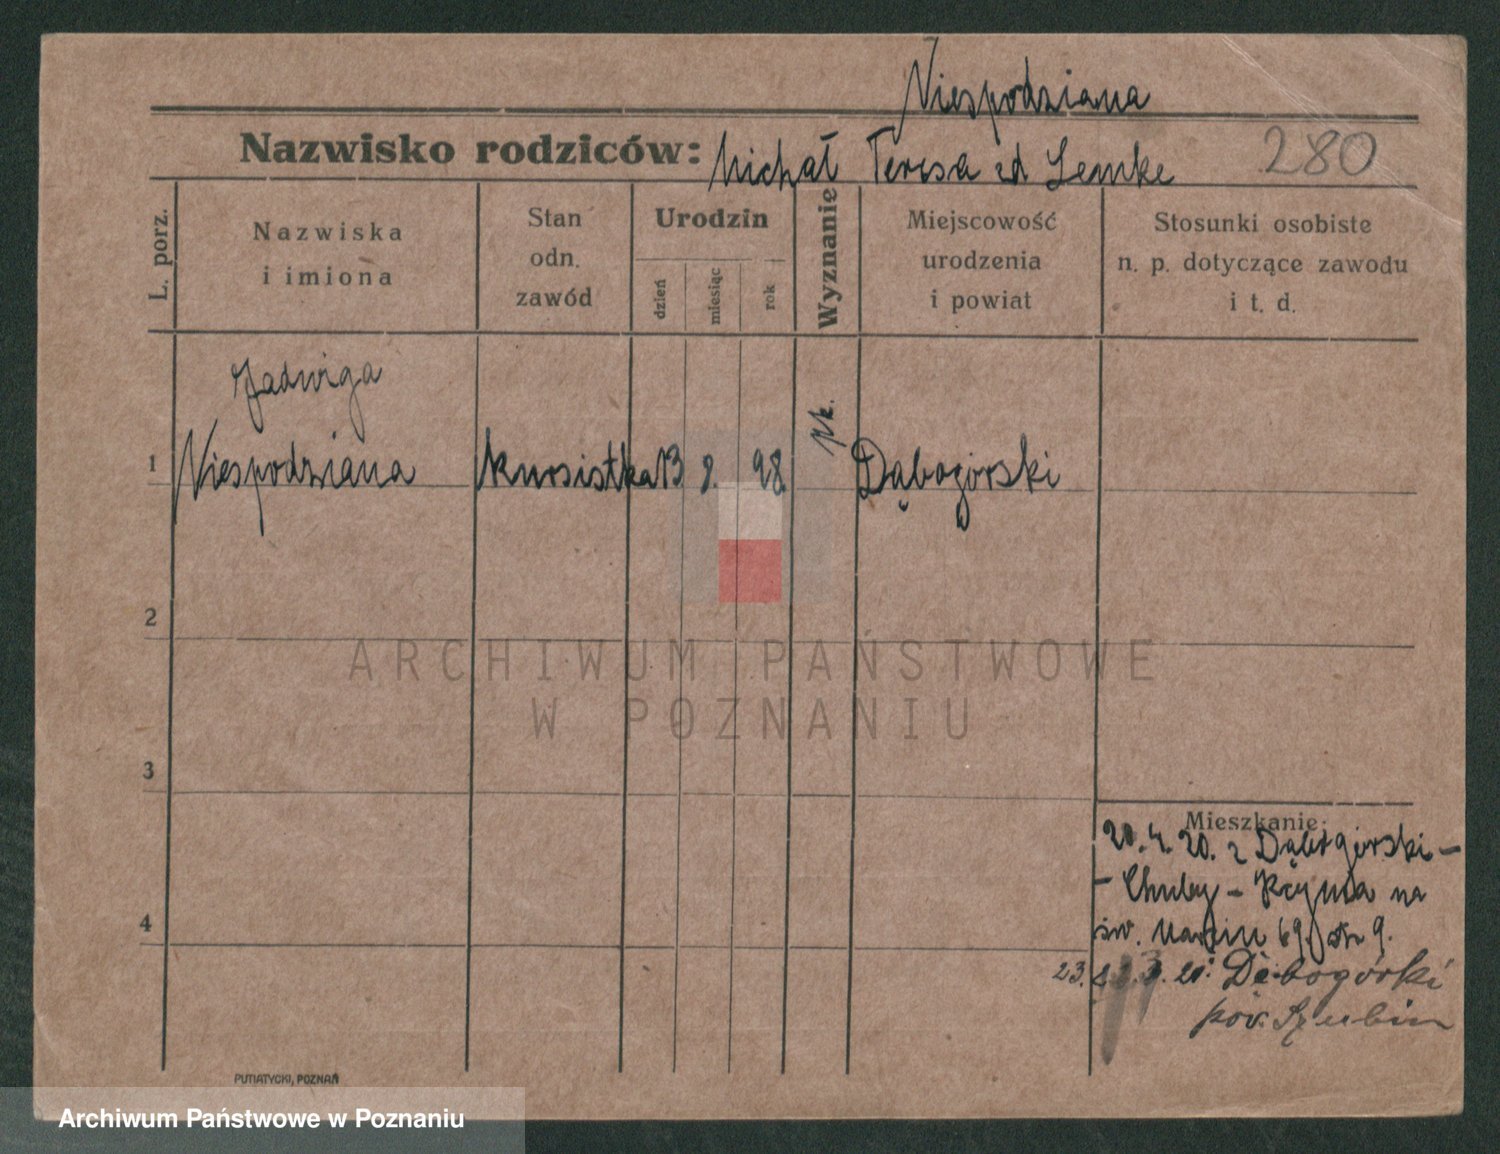 Niespodziana
Nazwisko rodziców: Michał Teresa zd Lemke 280
L. porz.
Nazwiska
i imiona
Stan
odn.
zawód
Urodzin
dzień
miesiąc
rok
Wyznanie
Miejscowość
urodzenia
i powiat
Stosunki osobiste
n. p. dotyczące zawodu
i t. d.
Jadwiga
1 Niespodziana kursistka 13 9. 98. rk. Dąbogórski
2
3
4
Mieszkanie:
20. 4. 20. z Dąbogórski –
– Chuby – Kcynia na
św. Marcin 69. ptr 9.
23. 20. Debogórki
pow. Szubin
PUTIATYCKI, POZNAŃ
ARCHIWUM PAŃSTWOWE
W POZNANIU
Archiwum Państwowe w Poznaniu